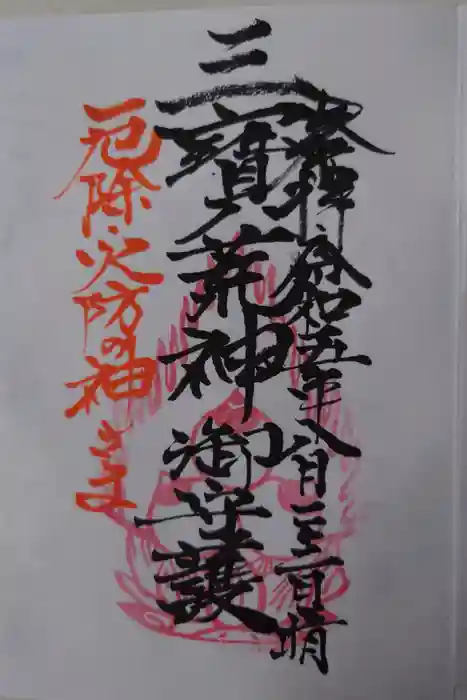 奉拝・令和五年八月 日晴
三寳荒神 御守護
厄除・火防の神さま